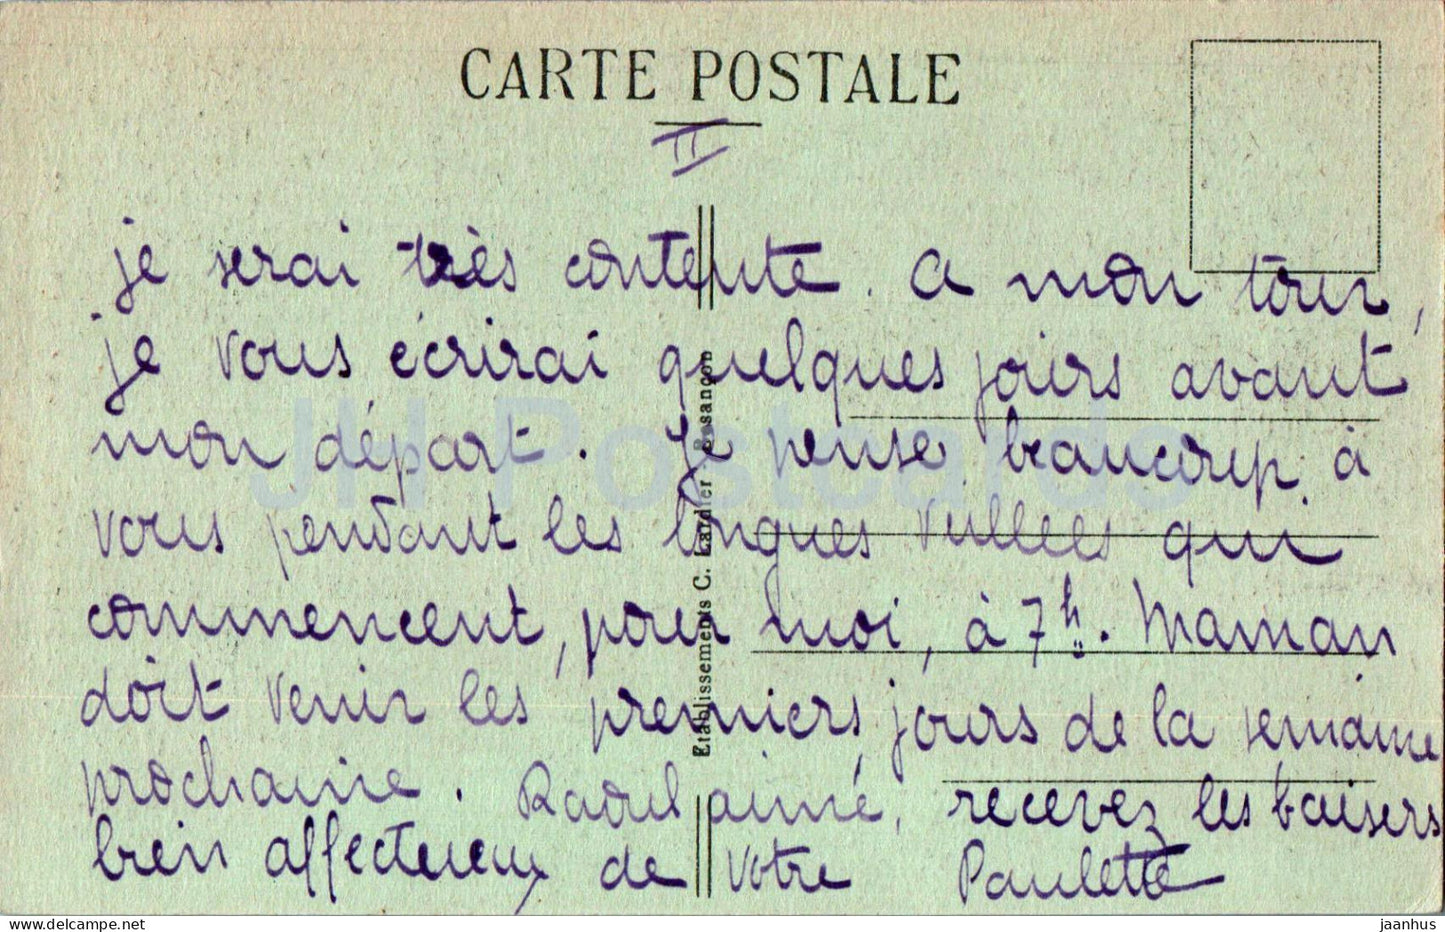 CARTE POSTALE
II
je serai très contente. A mon tour,
je vous écrirai quelques jours avant
mon départ. Je pense beaucoup à
vous pendant les longues veillées qui
commencent, pour moi, à 7h. Maman
doit venir les premiers jours de la semaine
prochaine. Raoul aimé, recevez les baisers
bien affectueux de votre Paulette
Etablissements C. Lardier - Besançon
JH Postcards
delcampe.net
jaanhus